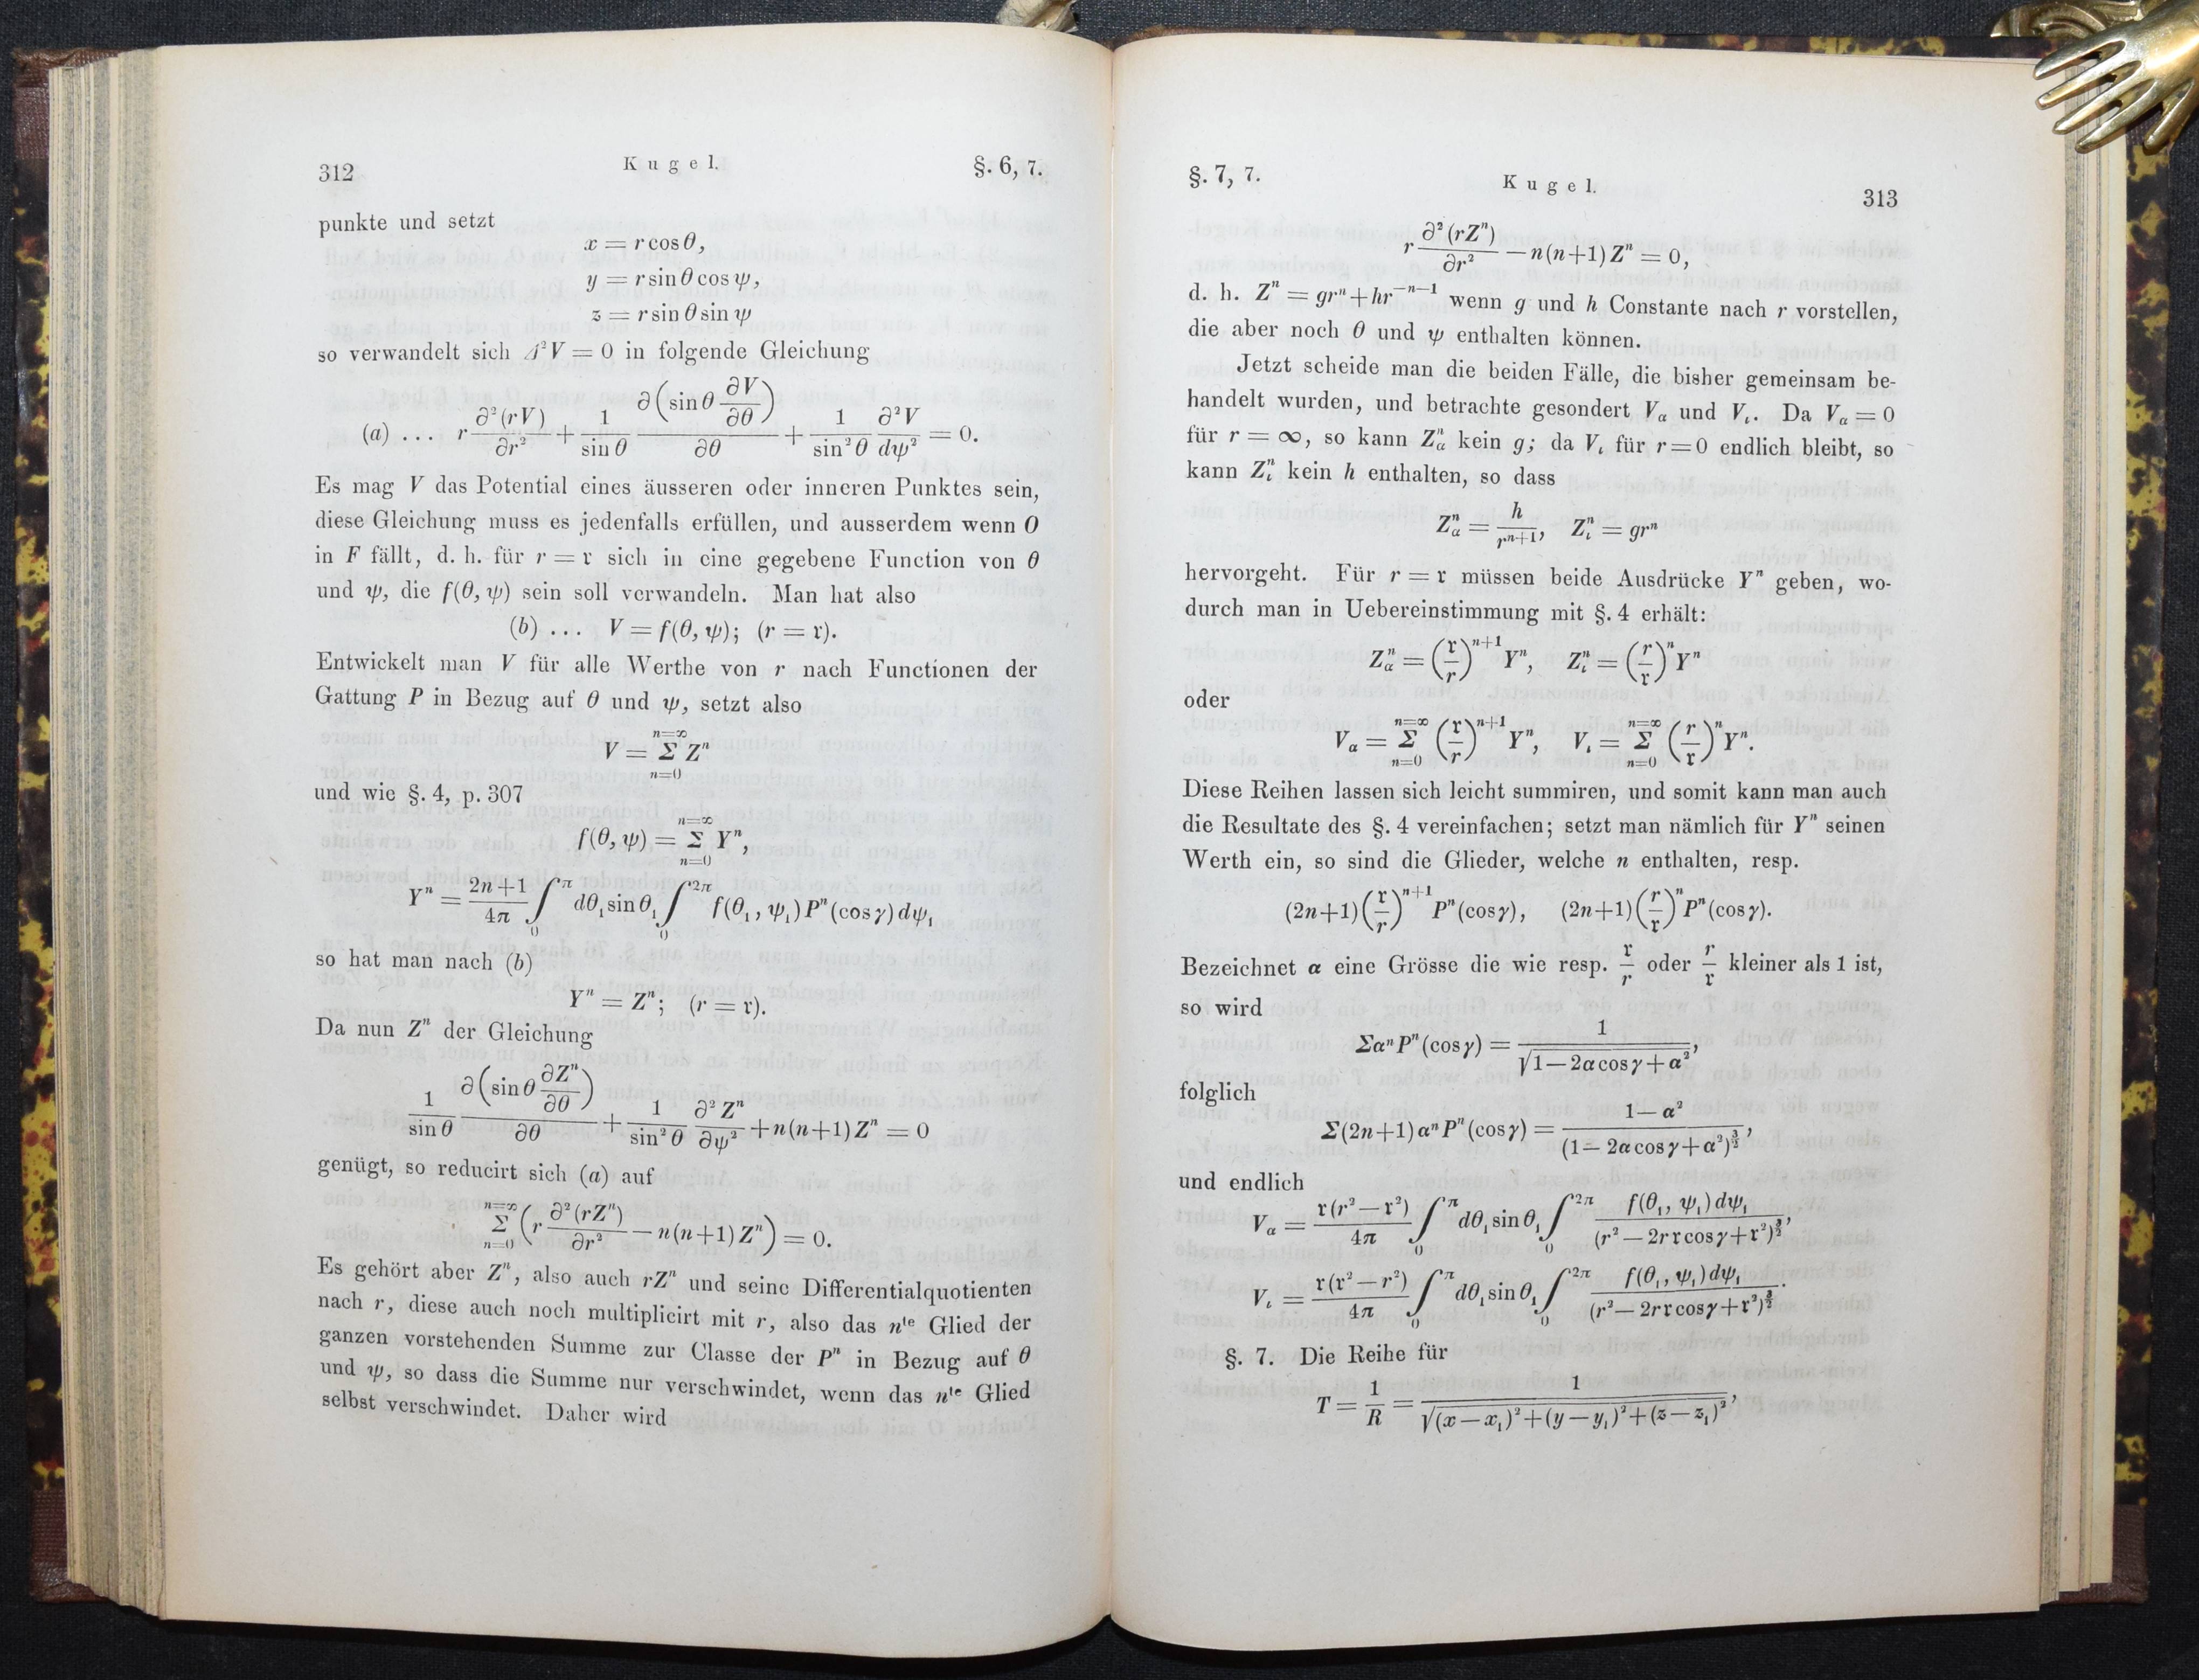 312 Kugel. §. 6, 7.
punkte und setzt
x = r cos θ,
y = r sin θ cos ψ,
z = r sin θ sin ψ
so verwandelt sich Δ²V = 0 in folgende Gleichung
(a) ... r ∂²(rV)/∂r² + 1/sin θ ∂(sin θ ∂V/∂θ)/∂θ + 1/sin²θ ∂²V/dψ² = 0.
Es mag V das Potential eines äusseren oder inneren Punktes sein,
diese Gleichung muss es jedenfalls erfüllen, und ausserdem wenn O
in F fällt, d. h. für r = 𝔯 sich in eine gegebene Function von θ
und ψ, die f(θ, ψ) sein soll verwandeln. Man hat also
(b) ... V = f(θ, ψ); (r = 𝔯).
Entwickelt man V für alle Werthe von r nach Functionen der
Gattung P in Bezug auf θ und ψ, setzt also
V = Σ_{n=0}^{n=∞} Zⁿ
und wie §. 4, p. 307
f(θ, ψ) = Σ_{n=0}^{n=∞} Yⁿ,
Yⁿ = (2n+1)/4π ∫₀^π dθ₁ sin θ₁ ∫₀^{2π} f(θ₁, ψ₁) Pⁿ(cos γ) dψ₁
so hat man nach (b)
Yⁿ = Zⁿ; (r = 𝔯).
Da nun Zⁿ der Gleichung
1/sin θ ∂(sin θ ∂Zⁿ/∂θ)/∂θ + 1/sin²θ ∂²Zⁿ/∂ψ² + n(n+1) Zⁿ = 0
genügt, so reducirt sich (a) auf
Σ_{n=0}^{n=∞} (r ∂²(rZⁿ)/∂r² − n(n+1) Zⁿ) = 0.
Es gehört aber Zⁿ, also auch rZⁿ und seine Differentialquotienten
nach r, diese auch noch multiplicirt mit r, also das nte Glied der
ganzen vorstehenden Summe zur Classe der Pⁿ in Bezug auf θ
und ψ, so dass die Summe nur verschwindet, wenn das nte Glied
selbst verschwindet. Daher wird
§. 7, 7. Kugel. 313
r ∂²(rZⁿ)/∂r² − n(n+1) Zⁿ = 0,
d. h. Zⁿ = grⁿ + hr^{−n−1} wenn g und h Constante nach r vorstellen,
die aber noch θ und ψ enthalten können.
Jetzt scheide man die beiden Fälle, die bisher gemeinsam be-
handelt wurden, und betrachte gesondert V_α und V_ι. Da V_α = 0
für r = ∞, so kann Z_αⁿ kein g; da V_ι für r = 0 endlich bleibt, so
kann Z_ιⁿ kein h enthalten, so dass
Z_αⁿ = h/r^{n+1}, Z_ιⁿ = grⁿ
hervorgeht. Für r = 𝔯 müssen beide Ausdrücke Yⁿ geben, wo-
durch man in Uebereinstimmung mit §. 4 erhält:
Z_αⁿ = (𝔯/r)^{n+1} Yⁿ, Z_ιⁿ = (r/𝔯)ⁿ Yⁿ
oder
V_α = Σ_{n=0}^{n=∞} (𝔯/r)^{n+1} Yⁿ, V_ι = Σ_{n=0}^{n=∞} (r/𝔯)ⁿ Yⁿ.
Diese Reihen lassen sich leicht summiren, und somit kann man auch
die Resultate des §. 4 vereinfachen; setzt man nämlich für Yⁿ seinen
Werth ein, so sind die Glieder, welche n enthalten, resp.
(2n+1)(𝔯/r)^{n+1} Pⁿ(cos γ), (2n+1)(r/𝔯)ⁿ Pⁿ(cos γ).
Bezeichnet α eine Grösse die wie resp. 𝔯/r oder r/𝔯 kleiner als 1 ist,
so wird
Σαⁿ Pⁿ(cos γ) = 1/√(1 − 2α cos γ + α²),
folglich
Σ(2n+1) αⁿ Pⁿ(cos γ) = (1 − α²)/(1 − 2α cos γ + α²)^{3/2},
und endlich
V_α = 𝔯(r² − 𝔯²)/4π ∫₀^π dθ₁ sin θ₁ ∫₀^{2π} f(θ₁, ψ₁) dψ₁/(r² − 2r𝔯 cos γ + 𝔯²)^{3/2},
V_ι = 𝔯(𝔯² − r²)/4π ∫₀^π dθ₁ sin θ₁ ∫₀^{2π} f(θ₁, ψ₁) dψ₁/(r² − 2r𝔯 cos γ + 𝔯²)^{3/2}.
§. 7. Die Reihe für
T = 1/R = 1/√((x − x₁)² + (y − y₁)² + (z − z₁)²),